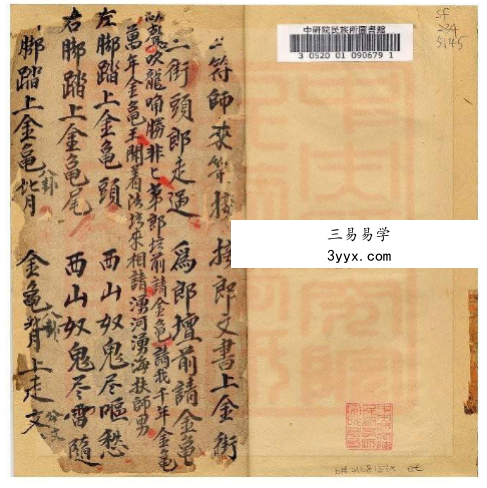 中研院民族所圖書館
3 0520 01 090679 1
5145
三易易学
3yyx.com
符師來等接 接郎文書上金街
二街頭郎走過 為郎壇前請金龜
郎坛前請金龜 請我千年金龜
萬年金龜王開着法坛來相請 湧河湧海扶師男
左脚踏上金龜頭 西山奴鬼尽嘔愁
右脚踏上金龜尾 西山奴鬼尽雷隨
脚踏上金龜 金龜背上走文